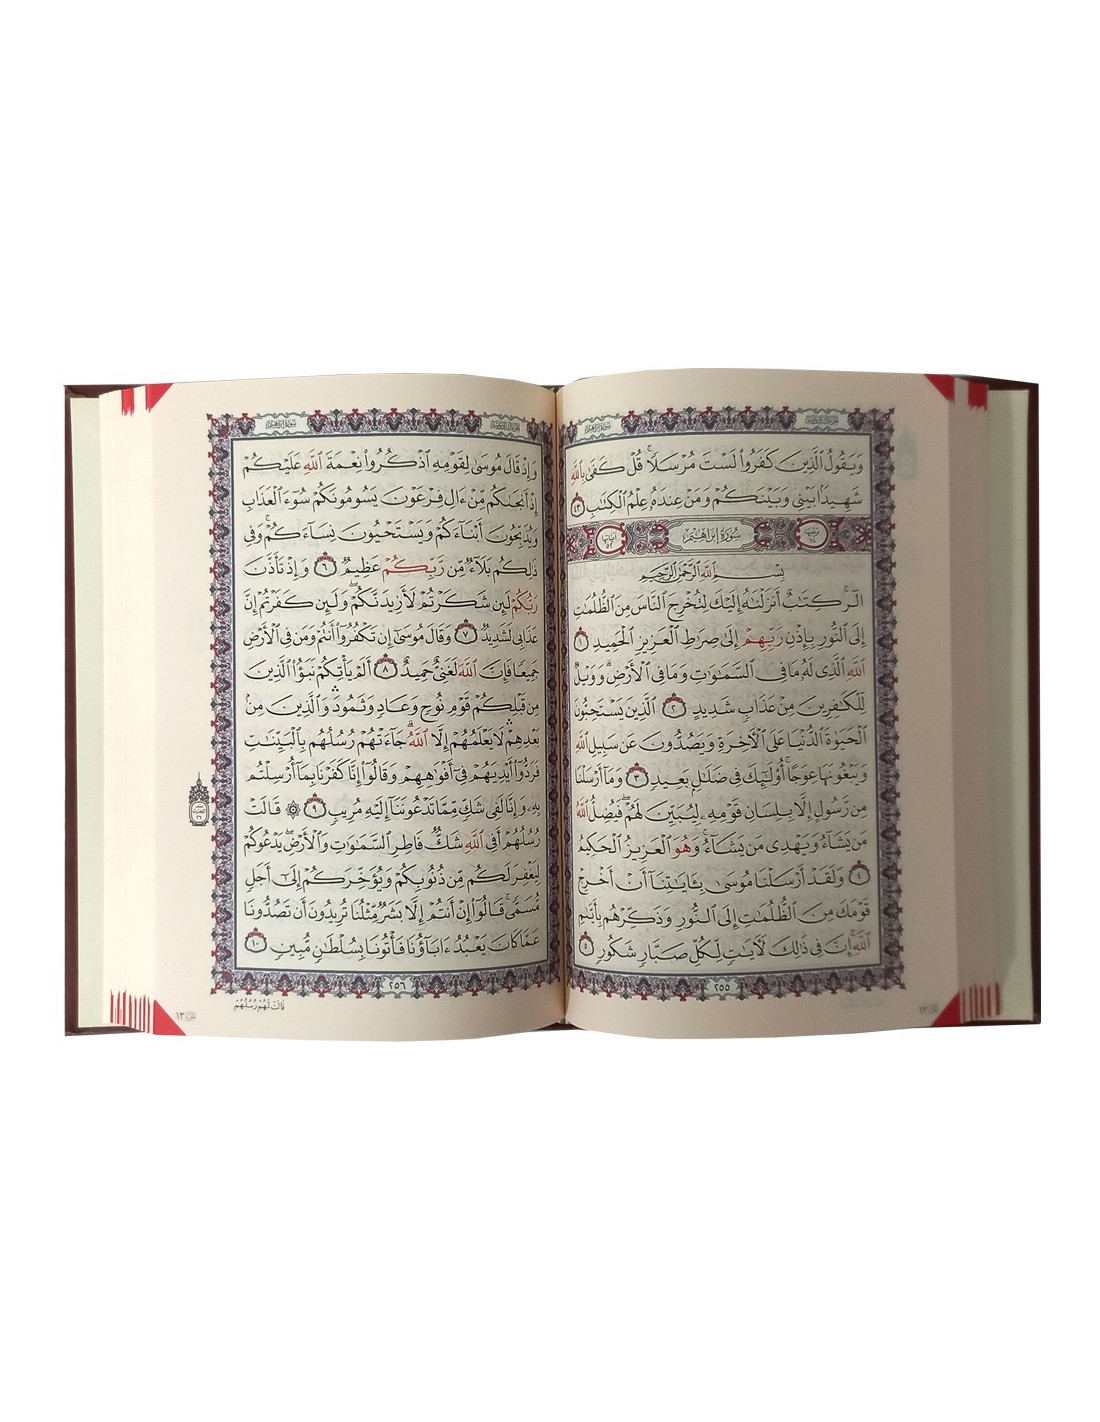 وَيَقُولُ ٱلَّذِينَ كَفَرُواْ لَسْتَ مُرْسَلًاۚ قُلْ كَفَىٰ بِٱللَّهِ
شَهِيدًۢا بَيْنِى وَبَيْنَكُمْ وَمَنْ عِندَهُۥ عِلْمُ ٱلْكِتَٰبِ ٤٣
سُورَةُ إِبْرَاهِيمَ
بِسْمِ ٱللَّهِ ٱلرَّحْمَٰنِ ٱلرَّحِيمِ
الٓرۚ كِتَٰبٌ أَنزَلْنَٰهُ إِلَيْكَ لِتُخْرِجَ ٱلنَّاسَ مِنَ ٱلظُّلُمَٰتِ
إِلَى ٱلنُّورِ بِإِذْنِ رَبِّهِمْ إِلَىٰ صِرَٰطِ ٱلْعَزِيزِ ٱلْحَمِيدِ ١
ٱللَّهِ ٱلَّذِى لَهُۥ مَا فِى ٱلسَّمَٰوَٰتِ وَمَا فِى ٱلْأَرْضِۗ وَوَيْلٌ
لِّلْكَٰفِرِينَ مِنْ عَذَابٍ شَدِيدٍ ٢ ٱلَّذِينَ يَسْتَحِبُّونَ
ٱلْحَيَوٰةَ ٱلدُّنْيَا عَلَى ٱلْأَخِرَةِ وَيَصُدُّونَ عَن سَبِيلِ ٱللَّهِ
وَيَبْغُونَهَا عِوَجًاۚ أُوْلَٰٓئِكَ فِى ضَلَٰلٍۭ بَعِيدٍ ٣ وَمَآ أَرْسَلْنَا
مِن رَّسُولٍ إِلَّا بِلِسَانِ قَوْمِهِۦ لِيُبَيِّنَ لَهُمْۖ فَيُضِلُّ ٱللَّهُ
مَن يَشَآءُ وَيَهْدِى مَن يَشَآءُۚ وَهُوَ ٱلْعَزِيزُ ٱلْحَكِيمُ
٤ وَلَقَدْ أَرْسَلْنَا مُوسَىٰ بِـَٔايَٰتِنَآ أَنْ أَخْرِجْ
قَوْمَكَ مِنَ ٱلظُّلُمَٰتِ إِلَى ٱلنُّورِ وَذَكِّرْهُم بِأَيَّىٰمِ
ٱللَّهِۚ إِنَّ فِى ذَٰلِكَ لَأٓيَٰتٍ لِّكُلِّ صَبَّارٍ شَكُورٍ ٥
٢٥٥
وَإِذْ قَالَ مُوسَىٰ لِقَوْمِهِ ٱذْكُرُواْ نِعْمَةَ ٱللَّهِ عَلَيْكُمْ
إِذْ أَنجَىٰكُم مِّنْ ءَالِ فِرْعَوْنَ يَسُومُونَكُمْ سُوٓءَ ٱلْعَذَابِ
وَيُذَبِّحُونَ أَبْنَآءَكُمْ وَيَسْتَحْيُونَ نِسَآءَكُمْۚ وَفِى
ذَٰلِكُم بَلَآءٌ مِّن رَّبِّكُمْ عَظِيمٌ ٦ وَإِذْ تَأَذَّنَ
رَبُّكُمْ لَئِن شَكَرْتُمْ لَأَزِيدَنَّكُمْۖ وَلَئِن كَفَرْتُمْ إِنَّ
عَذَابِى لَشَدِيدٌ ٧ وَقَالَ مُوسَىٰٓ إِن تَكْفُرُوٓاْ أَنتُمْ وَمَن فِى ٱلْأَرْضِ
جَمِيعًا فَإِنَّ ٱللَّهَ لَغَنِىٌّ حَمِيدٌ ٨ أَلَمْ يَأْتِكُمْ نَبَؤُاْ ٱلَّذِينَ
مِن قَبْلِكُمْ قَوْمِ نُوحٍ وَعَادٍ وَثَمُودَۛ وَٱلَّذِينَ مِنۢ
بَعْدِهِمْۛ لَا يَعْلَمُهُمْ إِلَّا ٱللَّهُۚ جَآءَتْهُمْ رُسُلُهُم بِٱلْبَيِّنَٰتِ
فَرَدُّوٓاْ أَيْدِيَهُمْ فِىٓ أَفْوَٰهِهِمْ وَقَالُوٓاْ إِنَّا كَفَرْنَا بِمَآ أُرْسِلْتُم
بِهِۦ وَإِنَّا لَفِى شَكٍّ مِّمَّا تَدْعُونَنَآ إِلَيْهِ مُرِيبٍ ٩ ۞ قَالَتْ
رُسُلُهُمْ أَفِى ٱللَّهِ شَكٌّ فَاطِرِ ٱلسَّمَٰوَٰتِ وَٱلْأَرْضِۖ يَدْعُوكُمْ
لِيَغْفِرَ لَكُم مِّن ذُنُوبِكُمْ وَيُؤَخِّرَكُمْ إِلَىٰٓ أَجَلٍ
مُّسَمًّىۚ قَالُوٓاْ إِنْ أَنتُمْ إِلَّا بَشَرٌ مِّثْلُنَا تُرِيدُونَ أَن تَصُدُّونَا
عَمَّا كَانَ يَعْبُدُ ءَابَآؤُنَا فَأْتُونَا بِسُلْطَٰنٍ مُّبِينٍ ١٠
٢٥٦
قَالَتْ لَهُمْ رُسُلُهُمْ